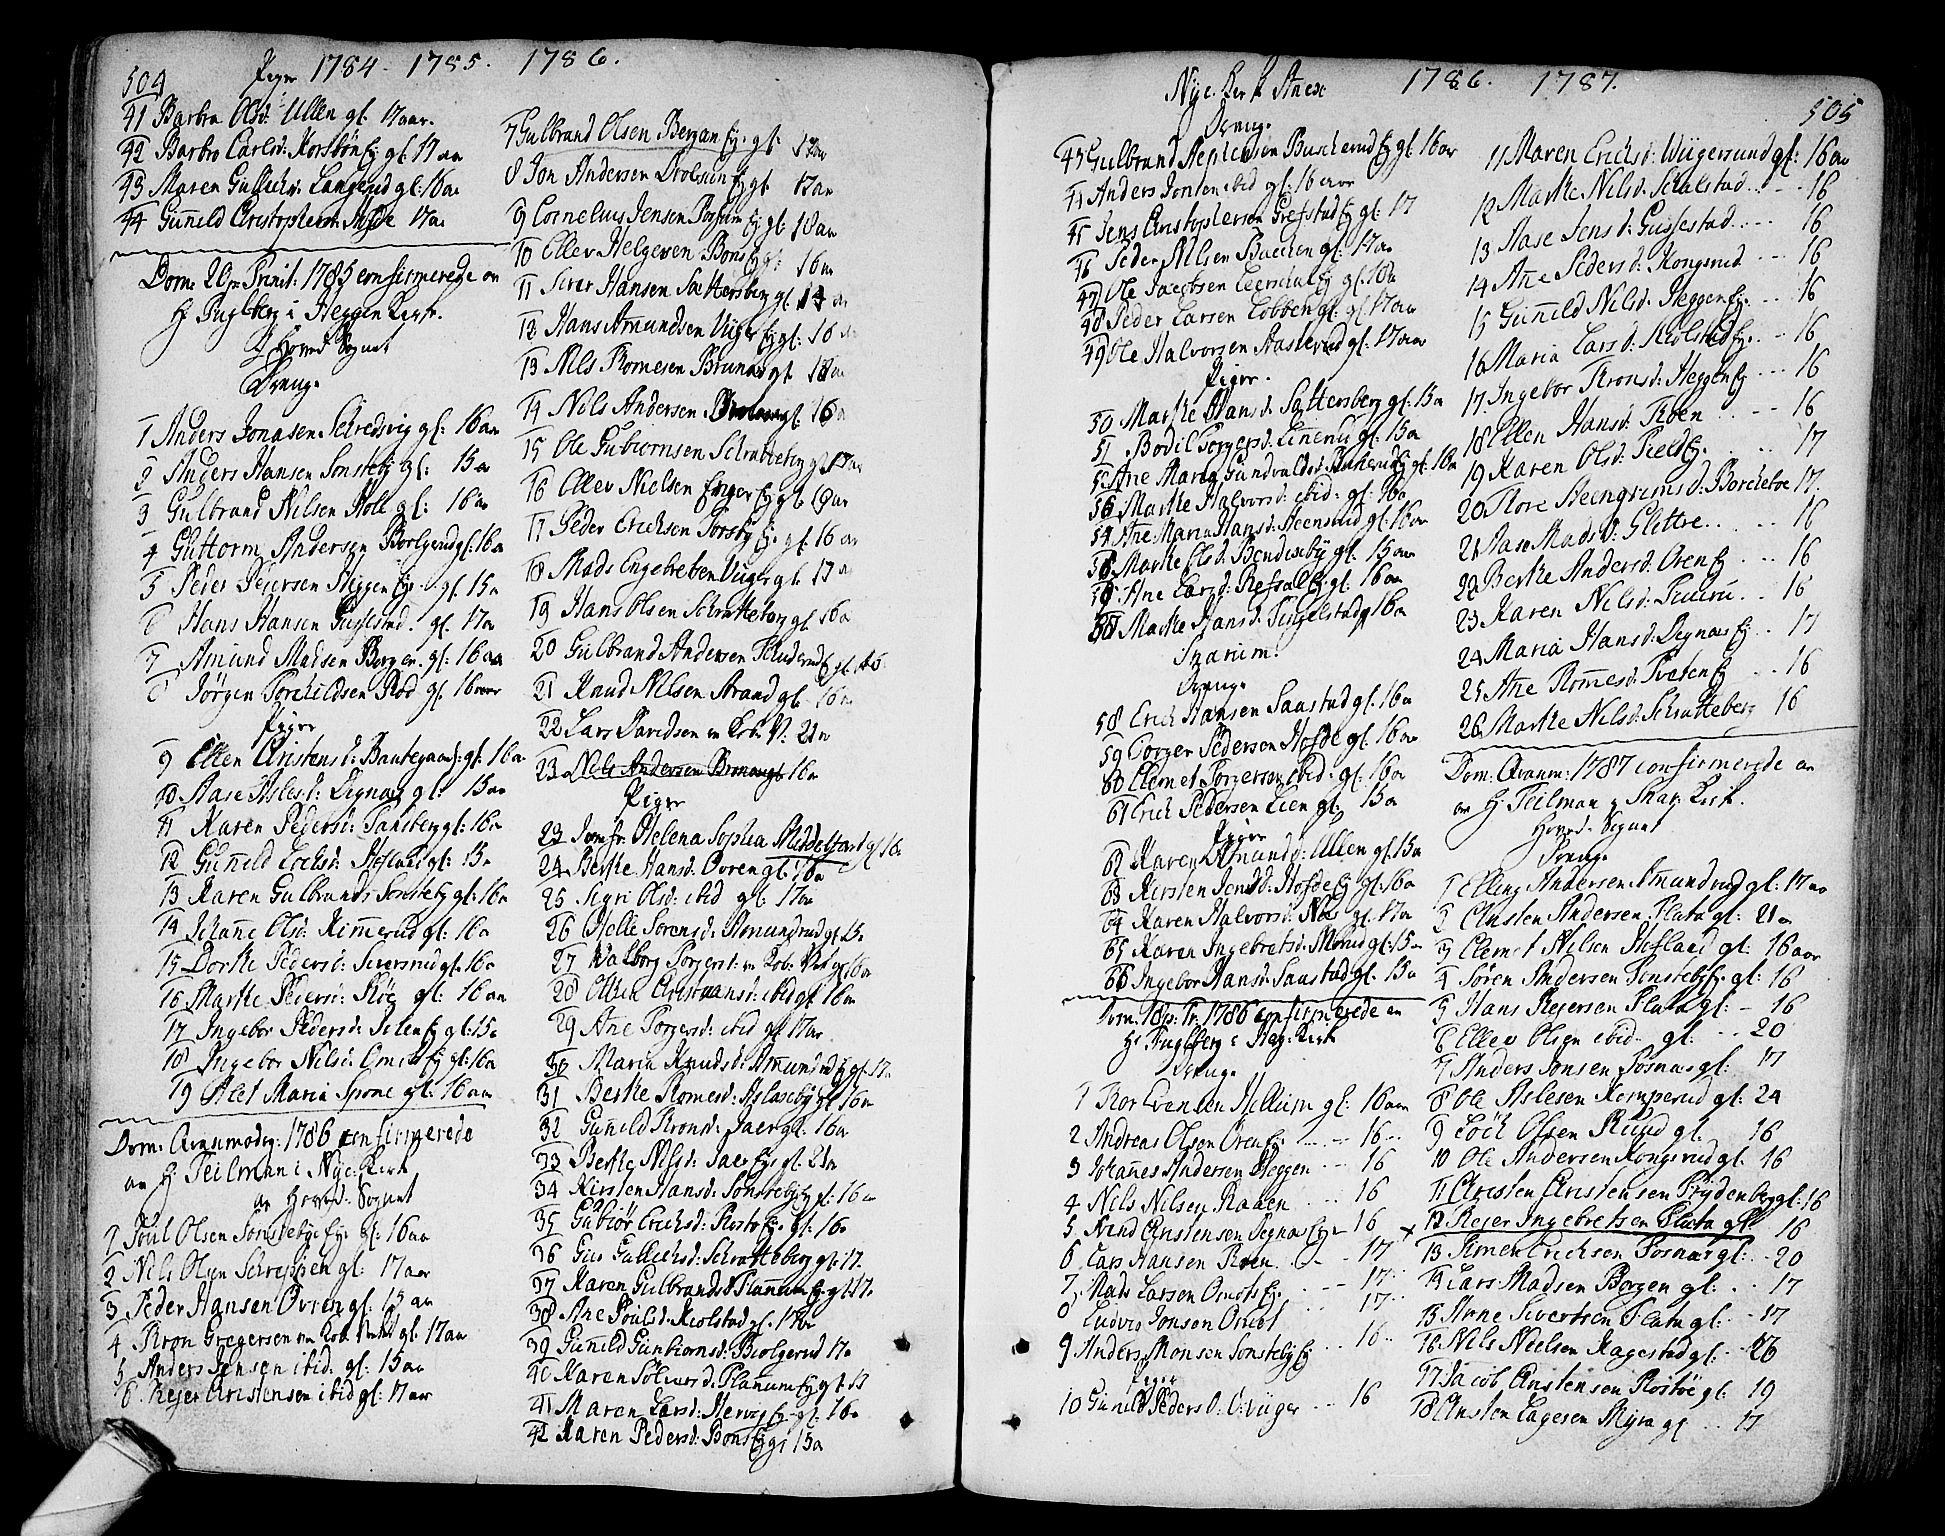 504 Piger 1784. 1785. 1786.
41 Barbra Olsd: Ullen gl. 17 aar.
42 Barbro Carlsd: Korsbön Ej gl 17 aar
43 Maren Gullichsd: Langerud gl: 16 aar
44 Guñild Christophersd: 17 aar
Dom: 20 p. Trinit: 1785 confirmerede an
H Fuglberg i Heggen Kirk.
Hoved Sognet
Drenge
1 Anders Jonasen gl. 16 aar
2 Anders Hansen Sonsteby gl: 15 a
3 Gulbrand Nilsen Holt gl: 16 a
4 Guttorm Andersen gl: 16 a
5 Peder Pedersen Heggen Eje gl. 15 a
6 Hans Hansen gl. 17 a
7 Amund Madsen Borgen gl: 16 aar
8 Jörgen Torchildsen Rod gl. 16 aar
Piger
9 Ellen Christensd: gl: 16 a
10 Aase Aslesd: Dignas gl: 15 aar
11 Karen Pedersd: gl: 16 a
12 Guñild gl: 15 a
13 Karen Gulbrandsd Sonsteby gl: 16 a
14 Johañe Olsd: gl: 16 a
15 Dorthe Pedersd: Siversrud gl: 16 a
16 Marthe Pedersd: gl: 16 aar
17 Ingebor Pedersd: Ej gl: 15 a
18 Ingebor Nilsd: Omot Ej gl: 16 a
19 Alet Maria Spone gl: 16 aar
Dom: Qvasimodog: 1786 confirmerede
an H Teilman i Nyc: Kirk
an Hoved. Sognet
1 Poul Olsen Sonsteby Eje gl: 16 aar
2 Nils Olsen gl: 17 aar
3 Peder Hansen Ovren gl: 15 aar
4 Thron Gregersen gl: 17 aar
5 Anders Jensen ibid. gl: 15 aar
6 Rejer Christensen ibid gl: 17 aar
7 Gulbrand Olsen Bergan Ej: gl:
8 Jon Andersen Ej gl 17 aar
9 Cornelius Jensen Ej gl: 18 aar
10 Ellev Helgesen Bons Ej gl: 16 aar
11 Siver Hansen Sattersberg gl
12 Hans Amundsen Viiger Ej gl: 16
13 Nils Thomesen gl 18 a
14 Nils Andersen gl: 16 a
15 Ole Gubiornsen Schratteberg gl 17 aar
16 Ellev Nielsen Enger Ej gl
17 Peder Erichsen Ej. gl 16 aar
18 Mads Engebretsen Viiger gl 17 a
19 Hans Olsen Schratteberg gl 16 a
20 Gulbrand Andersen Ej gl
21 Knud Nilsen Strand gl 16 a
22 Lars Davidsen 21 a
23 Nils Andersen gl 16 a
Piger
23 Jomfr. Helena Sophia Middelfard gl 16
24 Berthe Hansd: Ovren gl: 16 a
25 Sigri Olsd: ibid gl: 17 a
26 Helle Sorensd: Amundrud gl 15
27 Walborg Torgersd:
28 Christiansd: ibid gl 16 a
29 Ane Torgersd: ibid gl 17 aar
30 Maria Knudsd: Amundrud Ej gl 17
31 Berthe Thomesd: Aslaseby gl 16 a
32 Guñild Thronsd: Jaer gl: 16 a
33 Berthe Nilsd: Jaer Ej. gl: 21 a
34 Kirsten Hansd: Sonsteby Ej gl: 16 a
35 Gubiör Erichsd: gl: 16 a
36 Guri Gullichsd: Schratteberg gl: 17.
37 Karen Gulbrandsd Planum Ej gl 17
38 Ane Poulsd: Kiolstad gl. 17
39 Guñild Gunbiornsd: 17 a
40 Karen Planum Ej gl 17
41 Maren Larsd: Ej gl: 16 a
42 Karen Pedersd: Bons Ej gl 15 a
Nyc. Kerk Anex 1786. 1787.
505
Drenge
43 Gulbrand Busherud Ej gl 16 aar
44 Anders Jonsen ibid gl: 16 aar
45 Jens Christophersen Grefstad Ej gl: 17
46 Peder Nilsen gl: 17 a
47 Ole Jacobsen Ej gl:
48 Peder Larsen Lobben gl: 17 aar
49 Ole Halvorsen Aaserud gl: 17 aar
Piger.
50 Marthe Hansd: Sattersberg gl: 15 a
51 Bodil Torgersd: gl: 15 a
52 Ane Maria Gundvaldsd: Ej gl 16 a
53 Marthe Halvorsd: ibid: gl: 16 a
54 Ane Maria Hansd: Heensrud gl: 16 a
55 Marthe Elsd: Bendixeby gl: 15 aar
56 Ane Larsd: Refsal Ej gl: 16 aar
57 Marthe Hansd: Tingelstad gl 16 a
Snarum:
Drenge
58 Erich Hansen Saastad gl: 16 a
59 Torger Pedersen Hofde gl: 16 a
60 Clemet Torgersen ibid: gl: 16 a
61 Erich Pedersen Lien gl: 15 a
Piger
62 Karen Amundsd: Ullen gl: 15 a
63 Kirsten Jensd: Hofde Ej gl: 16 a
64 Karen Halvorsd: gl: 17 a
65 Karen Ingebretsd: Morud gl: 15 a
66 Ingebor Hansd: Saastad gl: 15 a
Dom: 18 p: Tr: 1786 confirmerede an
H: Fuglberg i Hag: Kirk
Drenge
1 Thor Evensen Hellium gl: 16 aar
2 Andreas Olsen Oren Ej. 16
3 Johañes Andersen Heggen 16
4 Nils Nilsen Raaen 16
5 Christensen Dignas Ej 16
6 Lars Hansen Roen 17
7 Mads Larsen Omot Ej. 17
8 Ludvig Jonsen Omot 17
9 Anders Monsen Sonsteby Ej 16
Piger
10 Guñild Pedersd: Viiger 16
11 Maren Erichsd: Wiigersund gl: 16 aar
12 Marthe Nilsd: 16
13 Aase Jensd: 16
14 Añe Pedersd: Kongsrud 16
15 Guñild Nilsd: Heggen Ej. 16
16 Maria Larsd: Kiolstad Ej. 16
17 Ingebor Thronsd: Heggen Ej 16
18 Ellen Hansd: Roen 16
19 Karen Olsd: Field Ej. 17
20 Thore Steengrimsd: 17.
21 Aase Madsd: Glettre 16
22 Berthe Andersd: Oren Ej 16
23 Karen Nilsd: 16
24 Maria Hansd: Dignas Ej 17
25 Añe Thomesd: Tveten Ej 16
26 Marthe Nilsd: Schratteberg 16
Dom: Qvasim: 1787 confirmerede an
an H. Teilman i Snar: Kirk.
Hoved Sognet
Drenge
1 Elling Andersen Amundrud gl: 17 aar
2 Christen Andersen Plata gl: 21 a
3 Clemet Nilsen Hofland gl: 16 aar
4 Søren Andersen Sonsteby Ej: gl: 16
5 Hans Rejersen Plata gl: 16
6 Ellev Olsen ibid gl: 20
7 Anders Jonsen Fosnas gl: 17
8 Ole Aslesen Komperud gl: 24
9 Olsen Ruud gl: 16
10 Ole Andersen Kongsrud gl. 16
11 Christen Christensen Frydenberg gl: 16
× 12 Rejer Ingebretsen Plata gl 16
13 Simen Erichsen Fosnas gl: 20
14 Lars Madsen Borgen gl: 17
15 Arne Sivertsen Plata gl: 17
16 Nils Neelsen Kagestad gl:
17 Jacob Christensen gl: 19
18 Christen Lagesen Myra gl 17